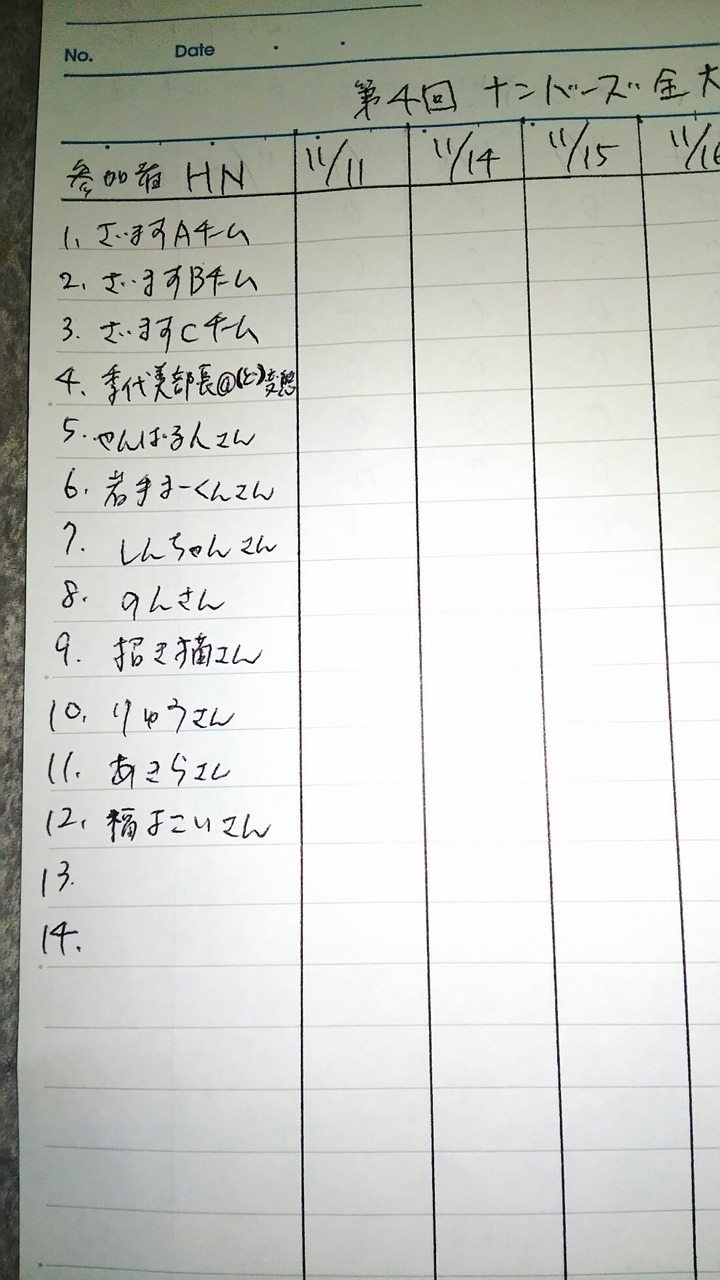 No. Date
第4回 ナンバーズ全大
参加者 HN 11/11 11/14 11/15 11/16
1. ざますAチーム
2. ざますBチーム
3. ざますCチーム
4. 季代美部長@(ど)変態
5. やんばるんさん
6. 岩手まーくんさん
7. しんちゃんさん
8. のんさん
9. 招き猫さん
10. りゅうさん
11. あきらさん
12. 福よこいさん
13.
14.